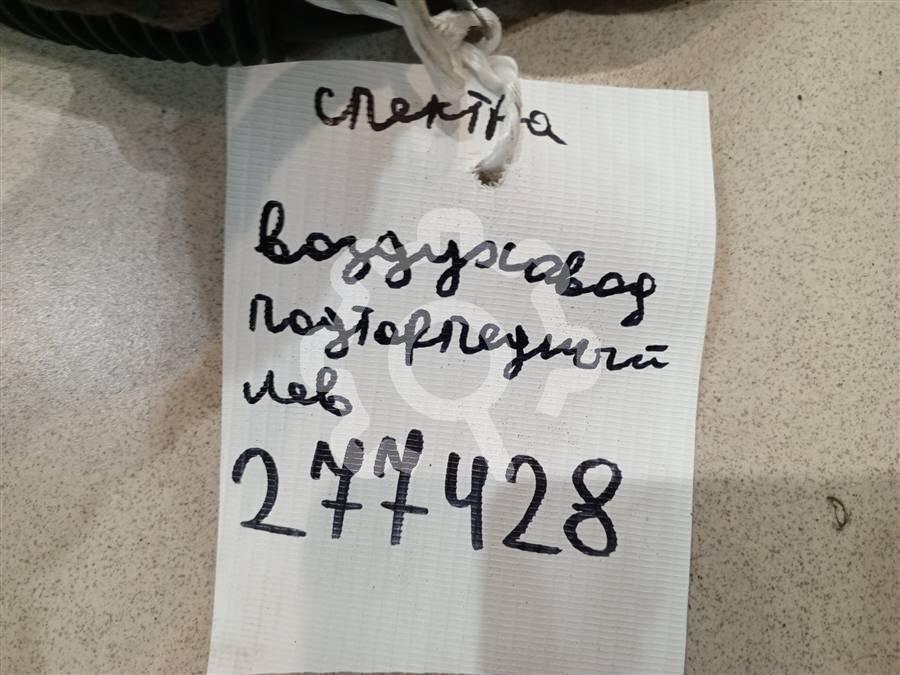 Спектра
Воздуховод
подторпедный
лев
277428